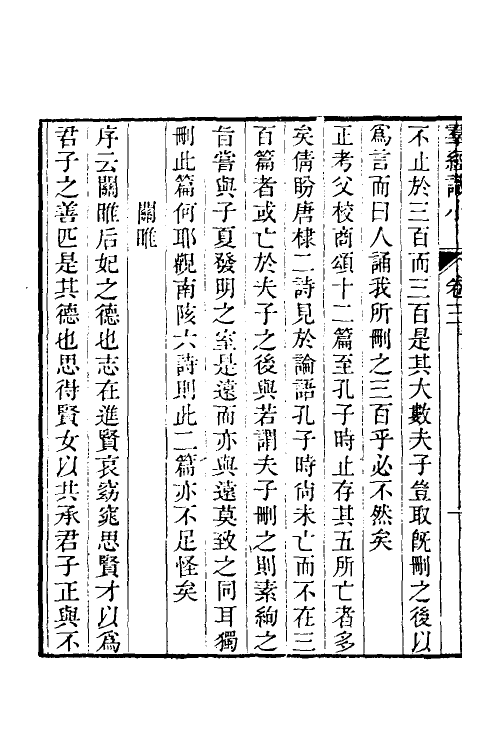 羣經識小 卷三 一
不止於三百而三百是其大數夫子豈取旣刪之後以
爲言而曰人誦我所刪之三百乎必不然矣
正考父校商頌十二篇至孔子時止存其五所亡者多
矣倩盼唐棣二詩見於論語孔子時尙未亡而不在三
百篇者或亡於夫子之後與若謂夫子刪之則素絢之
旨嘗與子夏發明之室是遠而亦與遠莫致之同耳獨
刪此篇何耶觀南陔六詩則此二篇亦不足怪矣
關雎
序云關雎后妃之德也志在進賢哀窈窕思賢才以爲
君子之善匹是其德也思得賢女以共承君子正與不